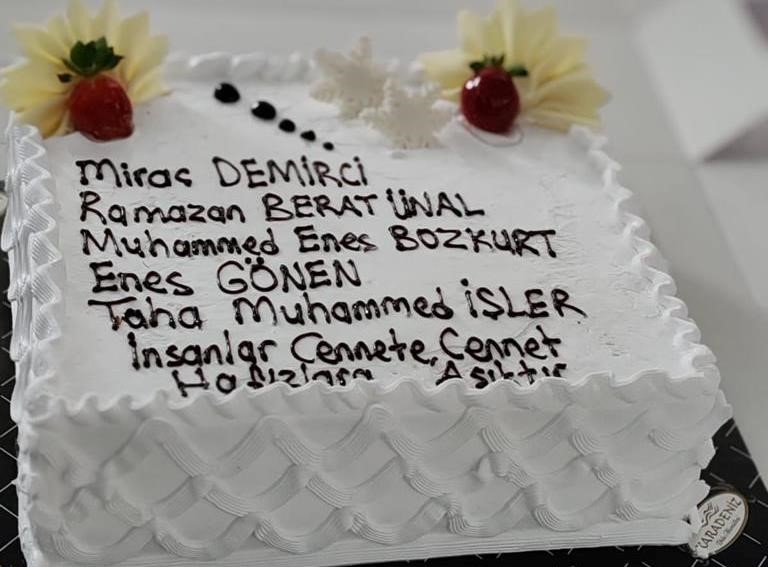 Miraç DEMİRCİ
Ramazan BERAT ÜNAL
Muhammed Enes BOZKURT
Enes GÖNEN
Taha Muhammed İŞLER
İnsanlar Cennete, Cennet
Hafızlara Aşıktır
KARADENİZ